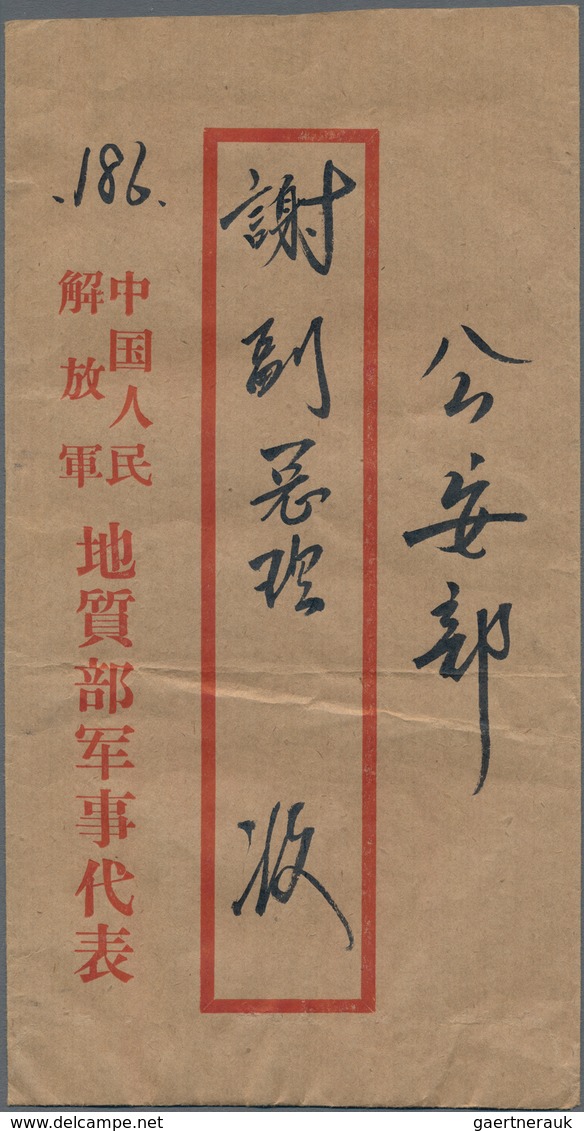 公安部
謝副总理 收
.186.
中国人民
解放軍
地質部军事代表
gaertnerauk